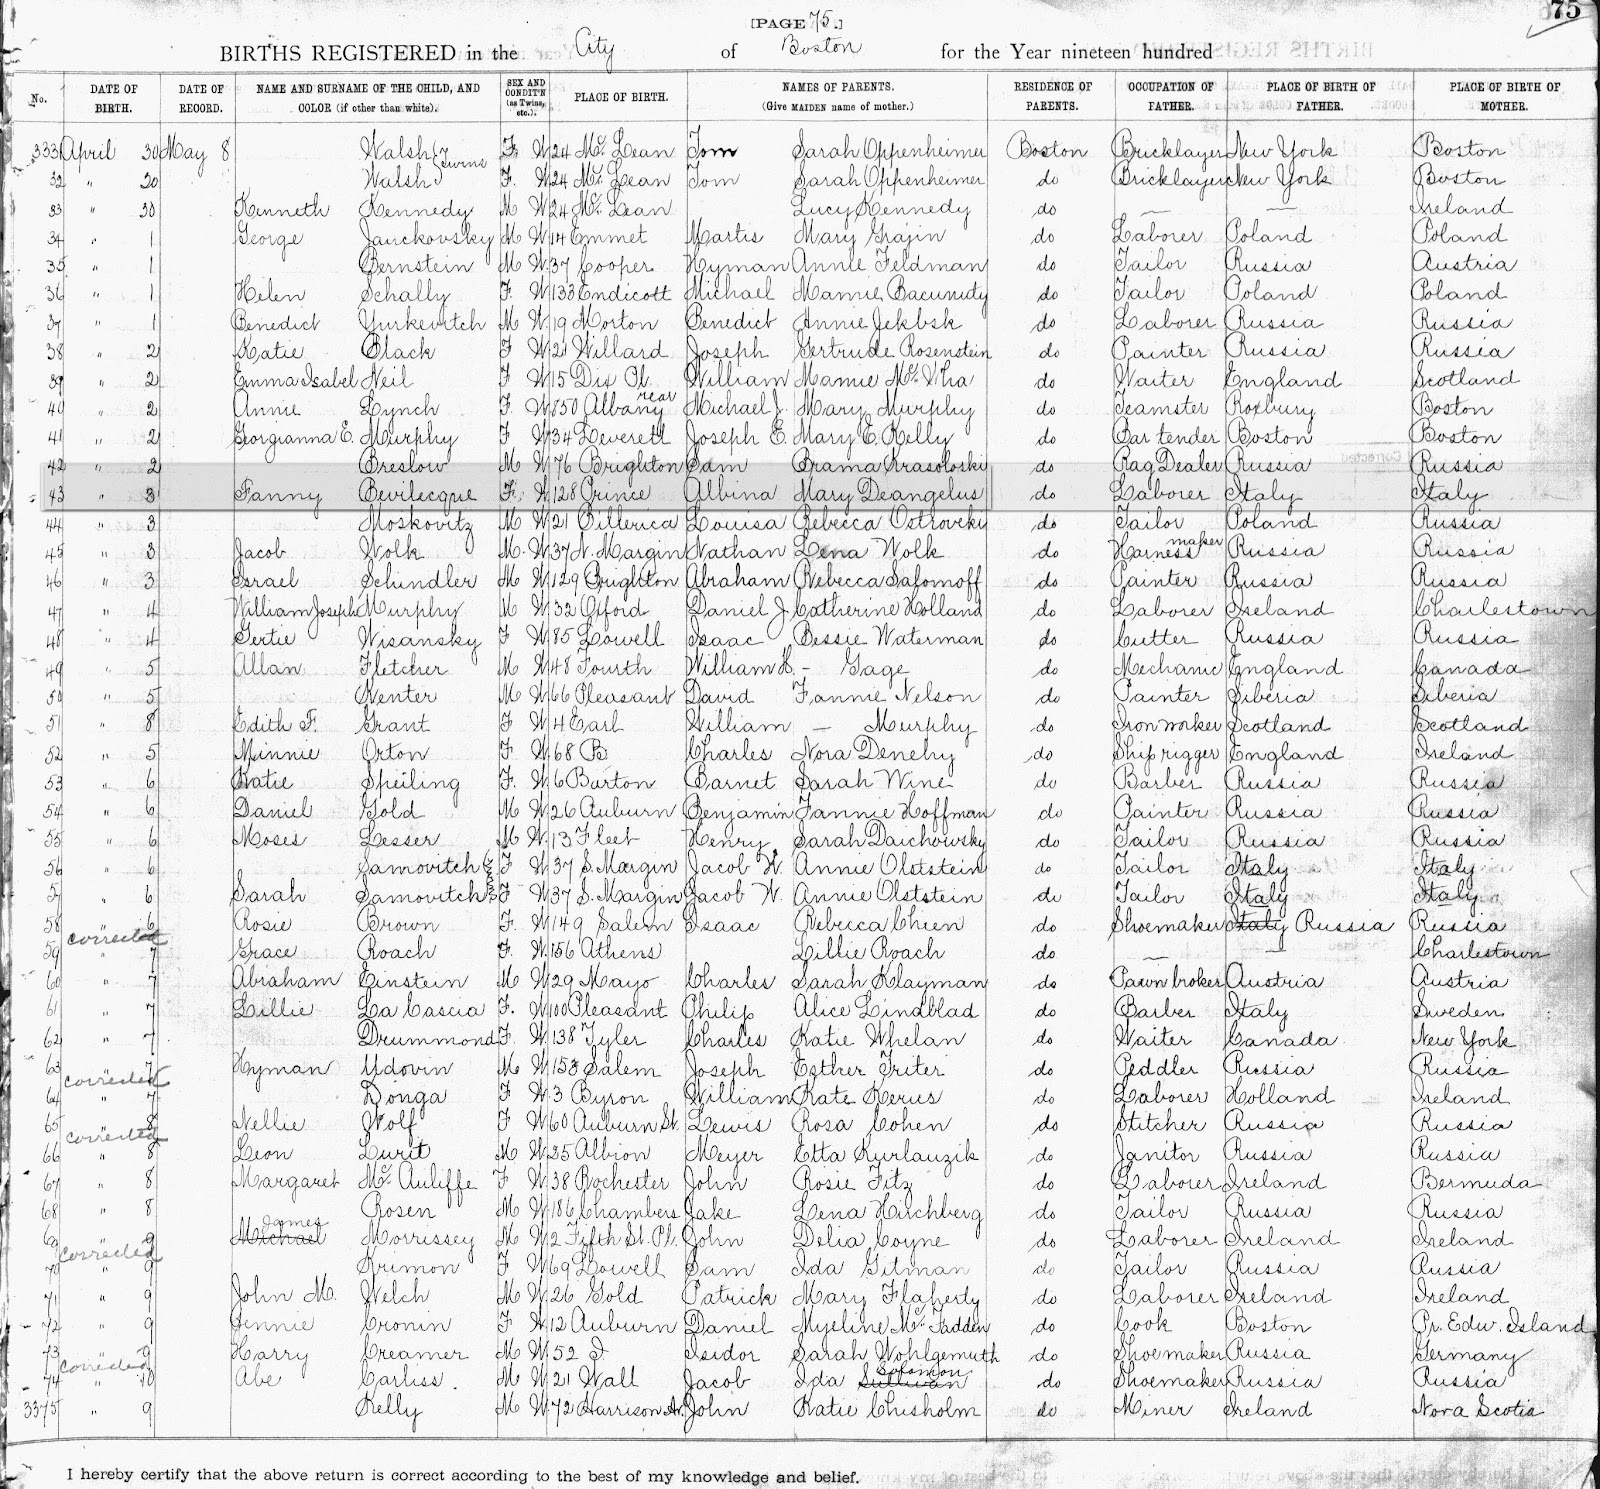 [PAGE 75.]
75
BIRTHS REGISTERED in the City of Boston for the Year nineteen hundred
No. DATE OF BIRTH. DATE OF RECORD. NAME AND SURNAME OF THE CHILD, AND COLOR (if other than white). SEX AND CONDIT'N (as Twins, etc.). PLACE OF BIRTH. NAMES OF PARENTS. (Give MAIDEN name of mother.) RESIDENCE OF PARENTS. OCCUPATION OF FATHER. PLACE OF BIRTH OF FATHER. PLACE OF BIRTH OF MOTHER.
3331 April 30 May 8 Walsh } Twins F. W 24 Mc Lean Tom Sarah Oppenheimer Boston Bricklayer New York Boston
32 " 30 Walsh F. W 24 Mc Lean Tom Sarah Oppenheimer do Bricklayer New York Boston
33 " 30 Kenneth Kennedy M W 24 Mc Lean Lucy Kennedy do — — Ireland
34 " 1 George Janckovsky M W 14 Emmet Martis Mary Grajin do Laborer Poland Poland
35 " 1 Bernstein M W 37 Cooper Hyman Annie Feldman do Tailor Russia Austria
36 " 1 Helen Schally F. W 133 Endicott Michael Mamie do Tailor Poland Poland
37 " 1 Benedict Yurkevitch M W 19 Morton Benedict Annie do Laborer Russia Russia
38 " 2 Katie Black F W 21 Willard Joseph Gertrude Rosenstein do Painter Russia Russia
39 " 2 Emma Isabel Neil F W 15 Dix Pl. William Mamie do Waiter England Scotland
40 " 2 Annie Lynch F. W 850 Albany rear Michael J. Mary Murphy do Teamster Roxbury Boston
41 " 2 Georgianna E. Murphy F W 34 Leverett Joseph E. Mary E. Kelly do Bartender Boston Boston
42 " 2 Breslow M W 76 Brighton Sam Brama Krasoloski do Rag Dealer Russia Russia
43 " 3 Fanny Bevilecque F. W 128 Prince Albina Mary Deangelus do Laborer Italy Italy
44 " 3 Moskovitz M W 21 Billerica Louisa Rebecca Ostrovsky do Tailor Poland Russia
45 " 3 Jacob Wolk M W 37 N. Margin Nathan Lena Wolk do Harness maker Russia Russia
46 " 3 Israel Schindler M W 129 Brighton Abraham Rebecca Safomoff do Painter Russia Russia
47 " 4 William Joseph Murphy M W 32 Oxford Daniel J. Catherine Holland do Laborer Ireland Charlestown
48 " 4 Gertie Wisansky F W 85 Lowell Isaac Bessie Waterman do Cutter Russia Russia
49 " 5 Allan Fletcher M W 48 Fourth William H. - Gage do Mechanic England Canada
50 " 5 Kenter M W 66 Pleasant David Fannie Nelson do Painter Siberia Siberia
51 " 8 Edith F. Grant F W 4 Earl William — Murphy do Ironworker Scotland Scotland
52 " 5 Minnie Orton F. W 68 B Charles Nora Denehy do Ship rigger England Ireland
53 " 6 Katie Speiling F. W 6 Barton Barnet Sarah Wine do Barber Russia Russia
54 " 6 Daniel Gold M W 26 Auburn Benjamin Fannie Hoffman do Painter Russia Russia
55 " 6 Moses Lesser M W 13 Fleet Henry Sarah Daichowsky do Tailor Russia Russia
56 " 6 Samovitch F W 37 S. Margin Jacob W. Annie Olstein do Tailor Italy Italy
57 " 6 Sarah Samovitch F W 37 S. Margin Jacob W. Annie Olstein do Tailor Italy Italy
58 " 6 Rosie Brown F. W 149 Salem Isaac Rebecca Chien do Shoemaker Italy Russia Russia
corrected
59 " 7 Grace Roach F. W 156 Athens Lillie Roach do — — Charlestown
60 " 7 Abraham Einstein M W 29 Mayo Charles Sarah Klayman do Pawnbroker Austria Austria
61 " 7 Lillie La Cascia F. W 100 Pleasant Philip Alice Lindblad do Barber Italy Sweden
62 " 7 Drummond F. W 138 Tyler Charles Katie Whelan do Waiter Canada New York
63 " 7 Hyman Udovin M W 153 Salem Joseph Esther Triter do Peddler Russia Russia
corrected
64 " 7 Donga F W 3 Byron William Kate Kerus do Laborer Holland Ireland
65 " 8 Nellie Wolf F W 60 Auburn St. Lewis Rosa Cohen do Stitcher Russia Russia
corrected
66 " 8 Leon Lurit M W 35 Albion Meyer Etta Kurlauzik do Janitor Russia Russia
67 " 8 Margaret Mc Auliffe F W 38 Rochester John Rosie Fitz do Laborer Ireland Bermuda
68 " 8 Rosen M W 186 Chambers Jake Lena Hirchberg do Tailor Russia Russia
69 " 9 Michael James Morrissey M W 2 Fifth St. Pl. John Delia Coyne do Laborer Ireland Ireland
corrected
70 " 9 Krimon F W 69 Lowell Sam Ida Gitman do Tailor Russia Russia
71 " 9 John M. Welch M W 26 Gold Patrick Mary Flaherty do Laborer Ireland Ireland
72 " 9 Jennie Cronin F W 12 Auburn Daniel Myeline Mc Fadden do Cook Boston Pr. Edw. Island
73 " 9 Harry Creamer M W 52 J. Isidor Sarah Wohlgemuth do Shoemaker Russia Germany
corrected
74 " 10 Abe Carliss. M W 21 Wall Jacob Ida Sullivan Solomon do Shoemaker Russia Russia
3375 " 9 Kelly M W 72 Harrison Av. John Katie Chisholm do Miner Ireland Nova Scotia
I hereby certify that the above return is correct according to the best of my knowledge and belief.